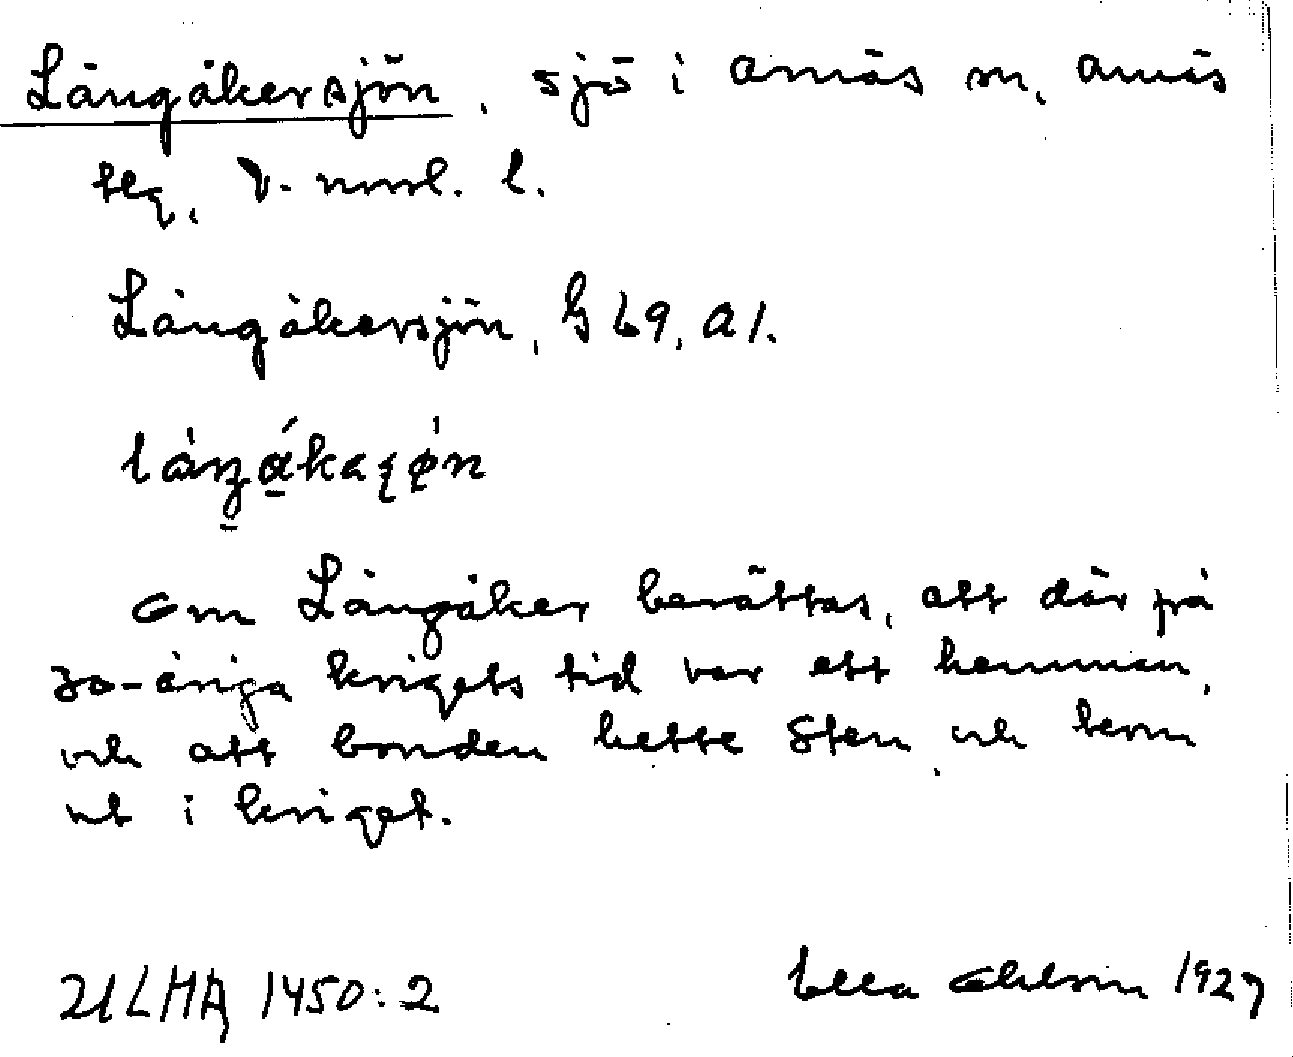 Långåkersjön, sjö i Arnäs sn, Arnäs
tlg, V. norrl. l.
Långåkersjön, G 69, A 1.
Om Långåker berättas, att där på
30-åriga krigets tid var ett hemman,
och att bonden hette Sten och kom
ut i kriget.
ULMA 1450:2 Ella Ohlson 1927